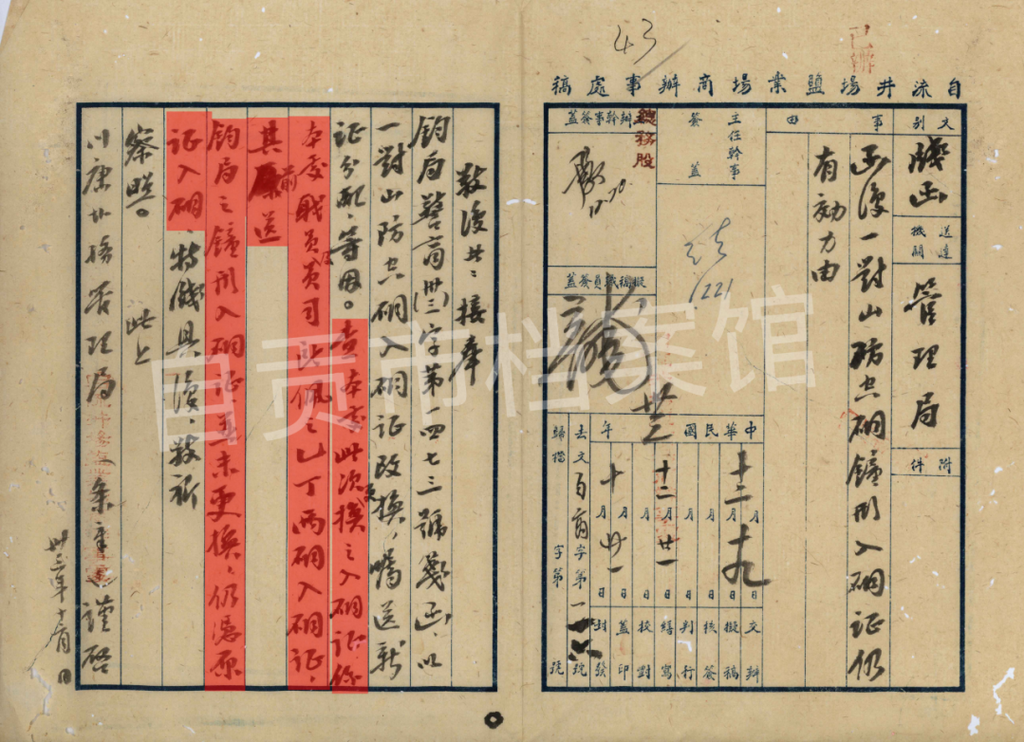 43
已辦
自流井場鹽業場商辦事處稿
文別
箋函
送達機關
管理局
附件
事由
函復一對山防空硐鐘形入硐证仍
有効力由
主任幹事
簽蓋
1221
總務股
辦幹事簽蓋
12.20
擬稿職員簽蓋
中華民國卅三年
十二月十九日
月日
十二月廿一日
月日
十月廿一日
文辦
擬稿
核簽
判行
繕寫
校對
蓋印
封發
去文百商字第一一八號
歸檔字第號
敬復者：接奉
鈞局警商(卅三)字第一四七三號箋函、以
一對山防空硐入硐证改換，嘱送新
证分配、等因。查本會此次換之入硐证係
本委職員員司所佩之乙丁两硐入硐证，
其前送
鈞局之鐘形入硐证並未更換，仍憑原
证入硐、特箋具復、敬祈
察照。
此上
川康盐務管理局
謹啓
卅三年十二月日
自贡市档案馆